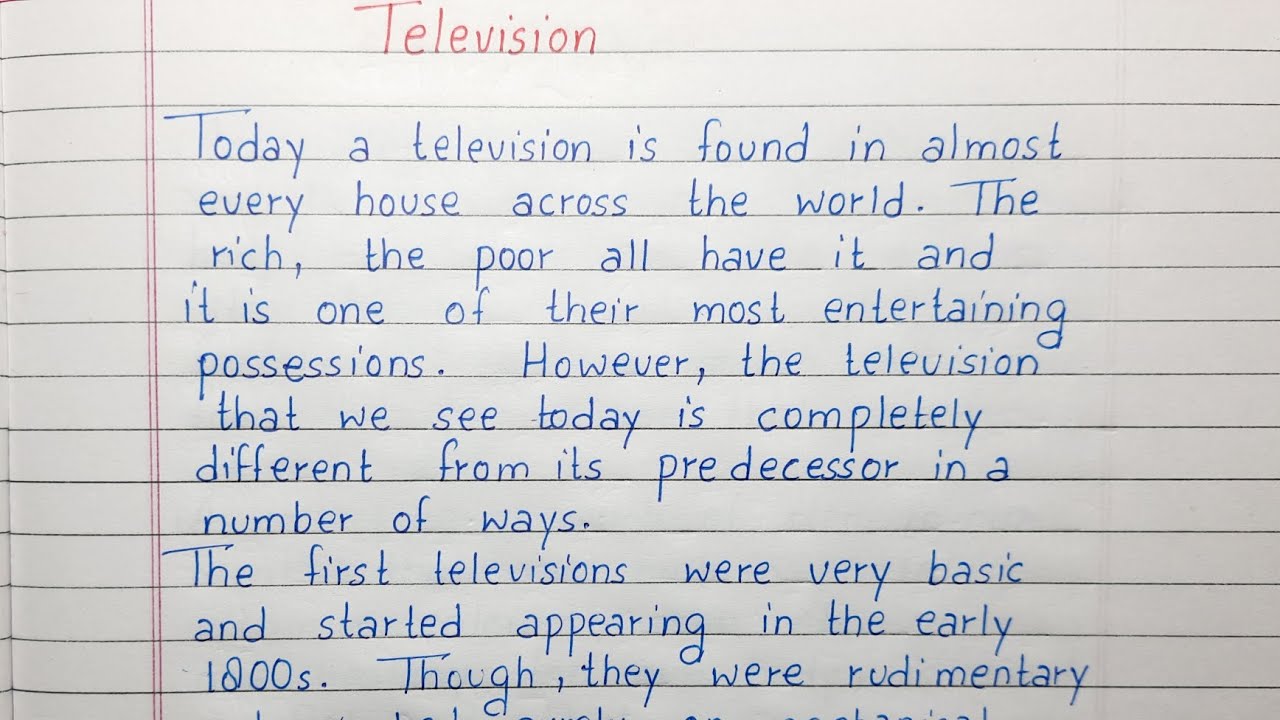 Television
Today a television is found in almost
every house across the world. The
rich, the poor all have it and
it is one of their most entertaining
possessions. However, the television
that we see today is completely
different from its predecessor in a
number of ways.
The first televisions were very basic
and started appearing in the early
1800s. Though, they were rudimentary